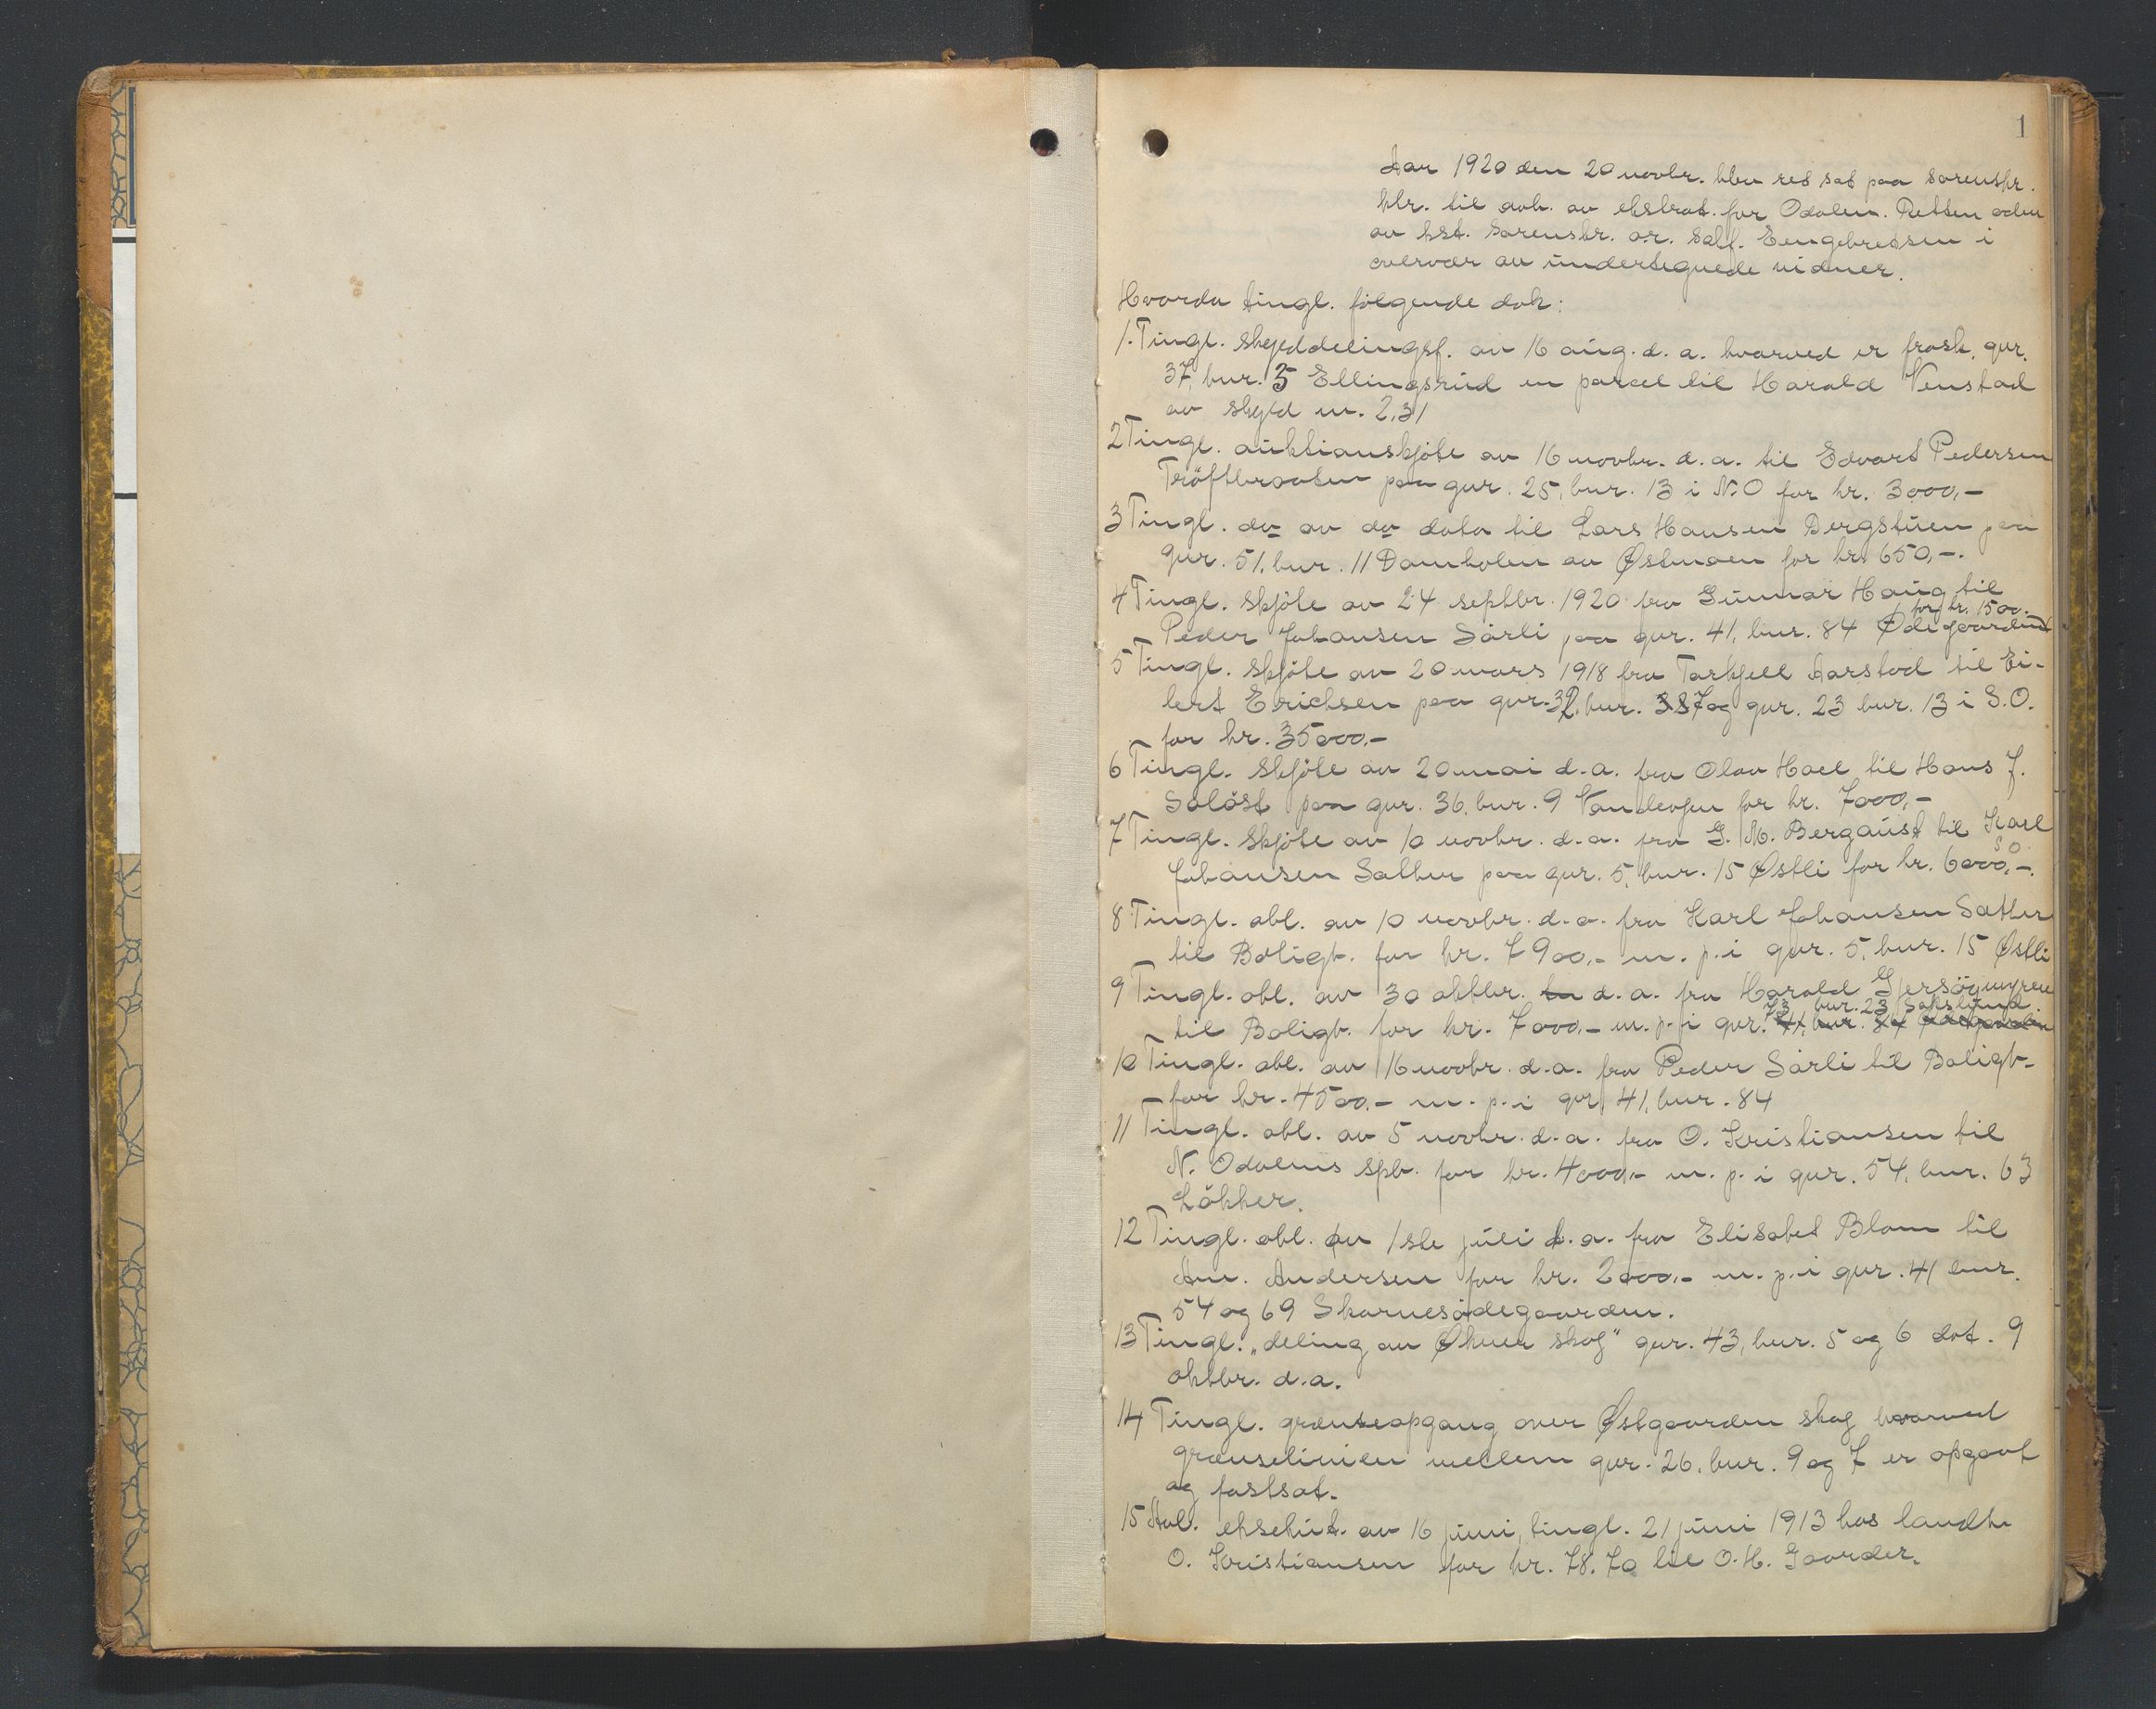 1
Aar 1920 den 20 novbr. blev ret sat paa sorenskr.
ktr. til avh. av ekstrat. for Odalen. Retten adm
av kst. sorenskr. o.r. salf. Eengebretsen i
overvær av undertegnede vidner.
Hvorda tingl. følgende dok:
1. Tingl. skylddelingsf. av 16 aug. d. a. hvorved er frask. gnr.
37, bnr. 5 Ellingsrud en parcel til Harald Venstad
av skyld m. 2,31
2 Tingl. auktionskjöte av 16 novbr. d. a. til Edvart Pedersen
Tröftbraaten paa gnr. 25, bnr. 13 i N.O for kr. 3000,-
3 Tingl. do av do dato til Lars Hansen Bergstuen paa
gnr. 51, bnr. 11 Damholen av Østmoen for kr. 650,-.
4 Tingl. skjöte av 24 septbr. 1920 fra Gunnar Haug til
for kr. 1500.
Peder Johansen Sörli paa gnr. 41, bnr. 84 Ødegaarden
5 Tingl. skjöte av 20 mars 1918 fra Tarkjell Aarstad til Ei-
lert Erichsen paa gnr. 32, bnr. 387 og gnr. 23 bnr. 13 i S.O.
for kr. 35000,-
6 Tingl. skjöte av 20 mai d. a. fra Olav Hoel til Hans J.
Solöst paa gnr. 36, bnr. 9 for kr. 7000,-
7 Tingl. skjöte av 10 novbr. d. a. fra G. M. Bergaust til Karl
S O
Johansen Sather paa gnr. 5, bnr. 15 Østli for kr. 6000,-.
8 Tingl. obl. av 10 novbr. d. a. fra Karl Johansen Sather
til Boligb. for kr. 7900,- m. p. i gnr. 5, bnr. 15 Østli
9 Tingl. obl. av 30 oktbr. d. a. fra Harald Gjersöymyren
73 bnr. 23 Sakslund
til Boligb. for kr. 7000,- m. p. i gnr. 41, bnr. 84 Ødegaarden
10 Tingl. obl. av 16 novbr. d. a. fra Peder Sörli til Boligb-
for kr. 4500,- m. p. i gnr 41, bnr. 84
11 Tingl. obl. av 5 novbr. d. a. fra O. Kristiansen til
N. Odalens spb. for kr. 4000,- m. p. i gnr. 54, bnr. 63
Lökker.
12 Tingl. obl. av 1ste juli d. a. fra Elisabet Blom til
Am. Andersen for kr. 2000,- m. p. i gnr. 41 bnr.
54 og 69 Skarnesödegaarden.
13 Tingl. "deling av Øknes skog" gnr. 43, bnr. 5 og 6 dat. 9
oktbr. d. a.
14 Tingl. grænseopgang over Østgaarden skog hvorved
grænselinien mellem gnr. 26, bnr. 9 og 7 er opgaat
og fastsat.
15 Avl. eksekut. av 16 juni, tingl. 21 juni 1913 hos landh.
O. Kristiansen for kr. 78.70 til O. H. Gaarder.